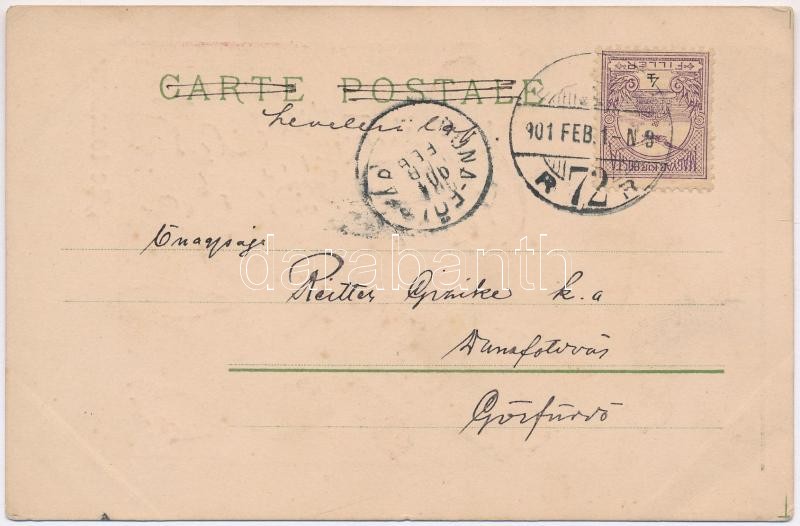 CARTE POSTALE
levelezőlap
4
FILLÉR
MAGYAR KIR. POSTA
901 FEB. 1 N 9
R 72 R
DUNA-FÖLDVÁR
901
FEB
Önagysága
Reitter Gizike k.a
Dunaföldvár
Gőzfürdő
darabanth